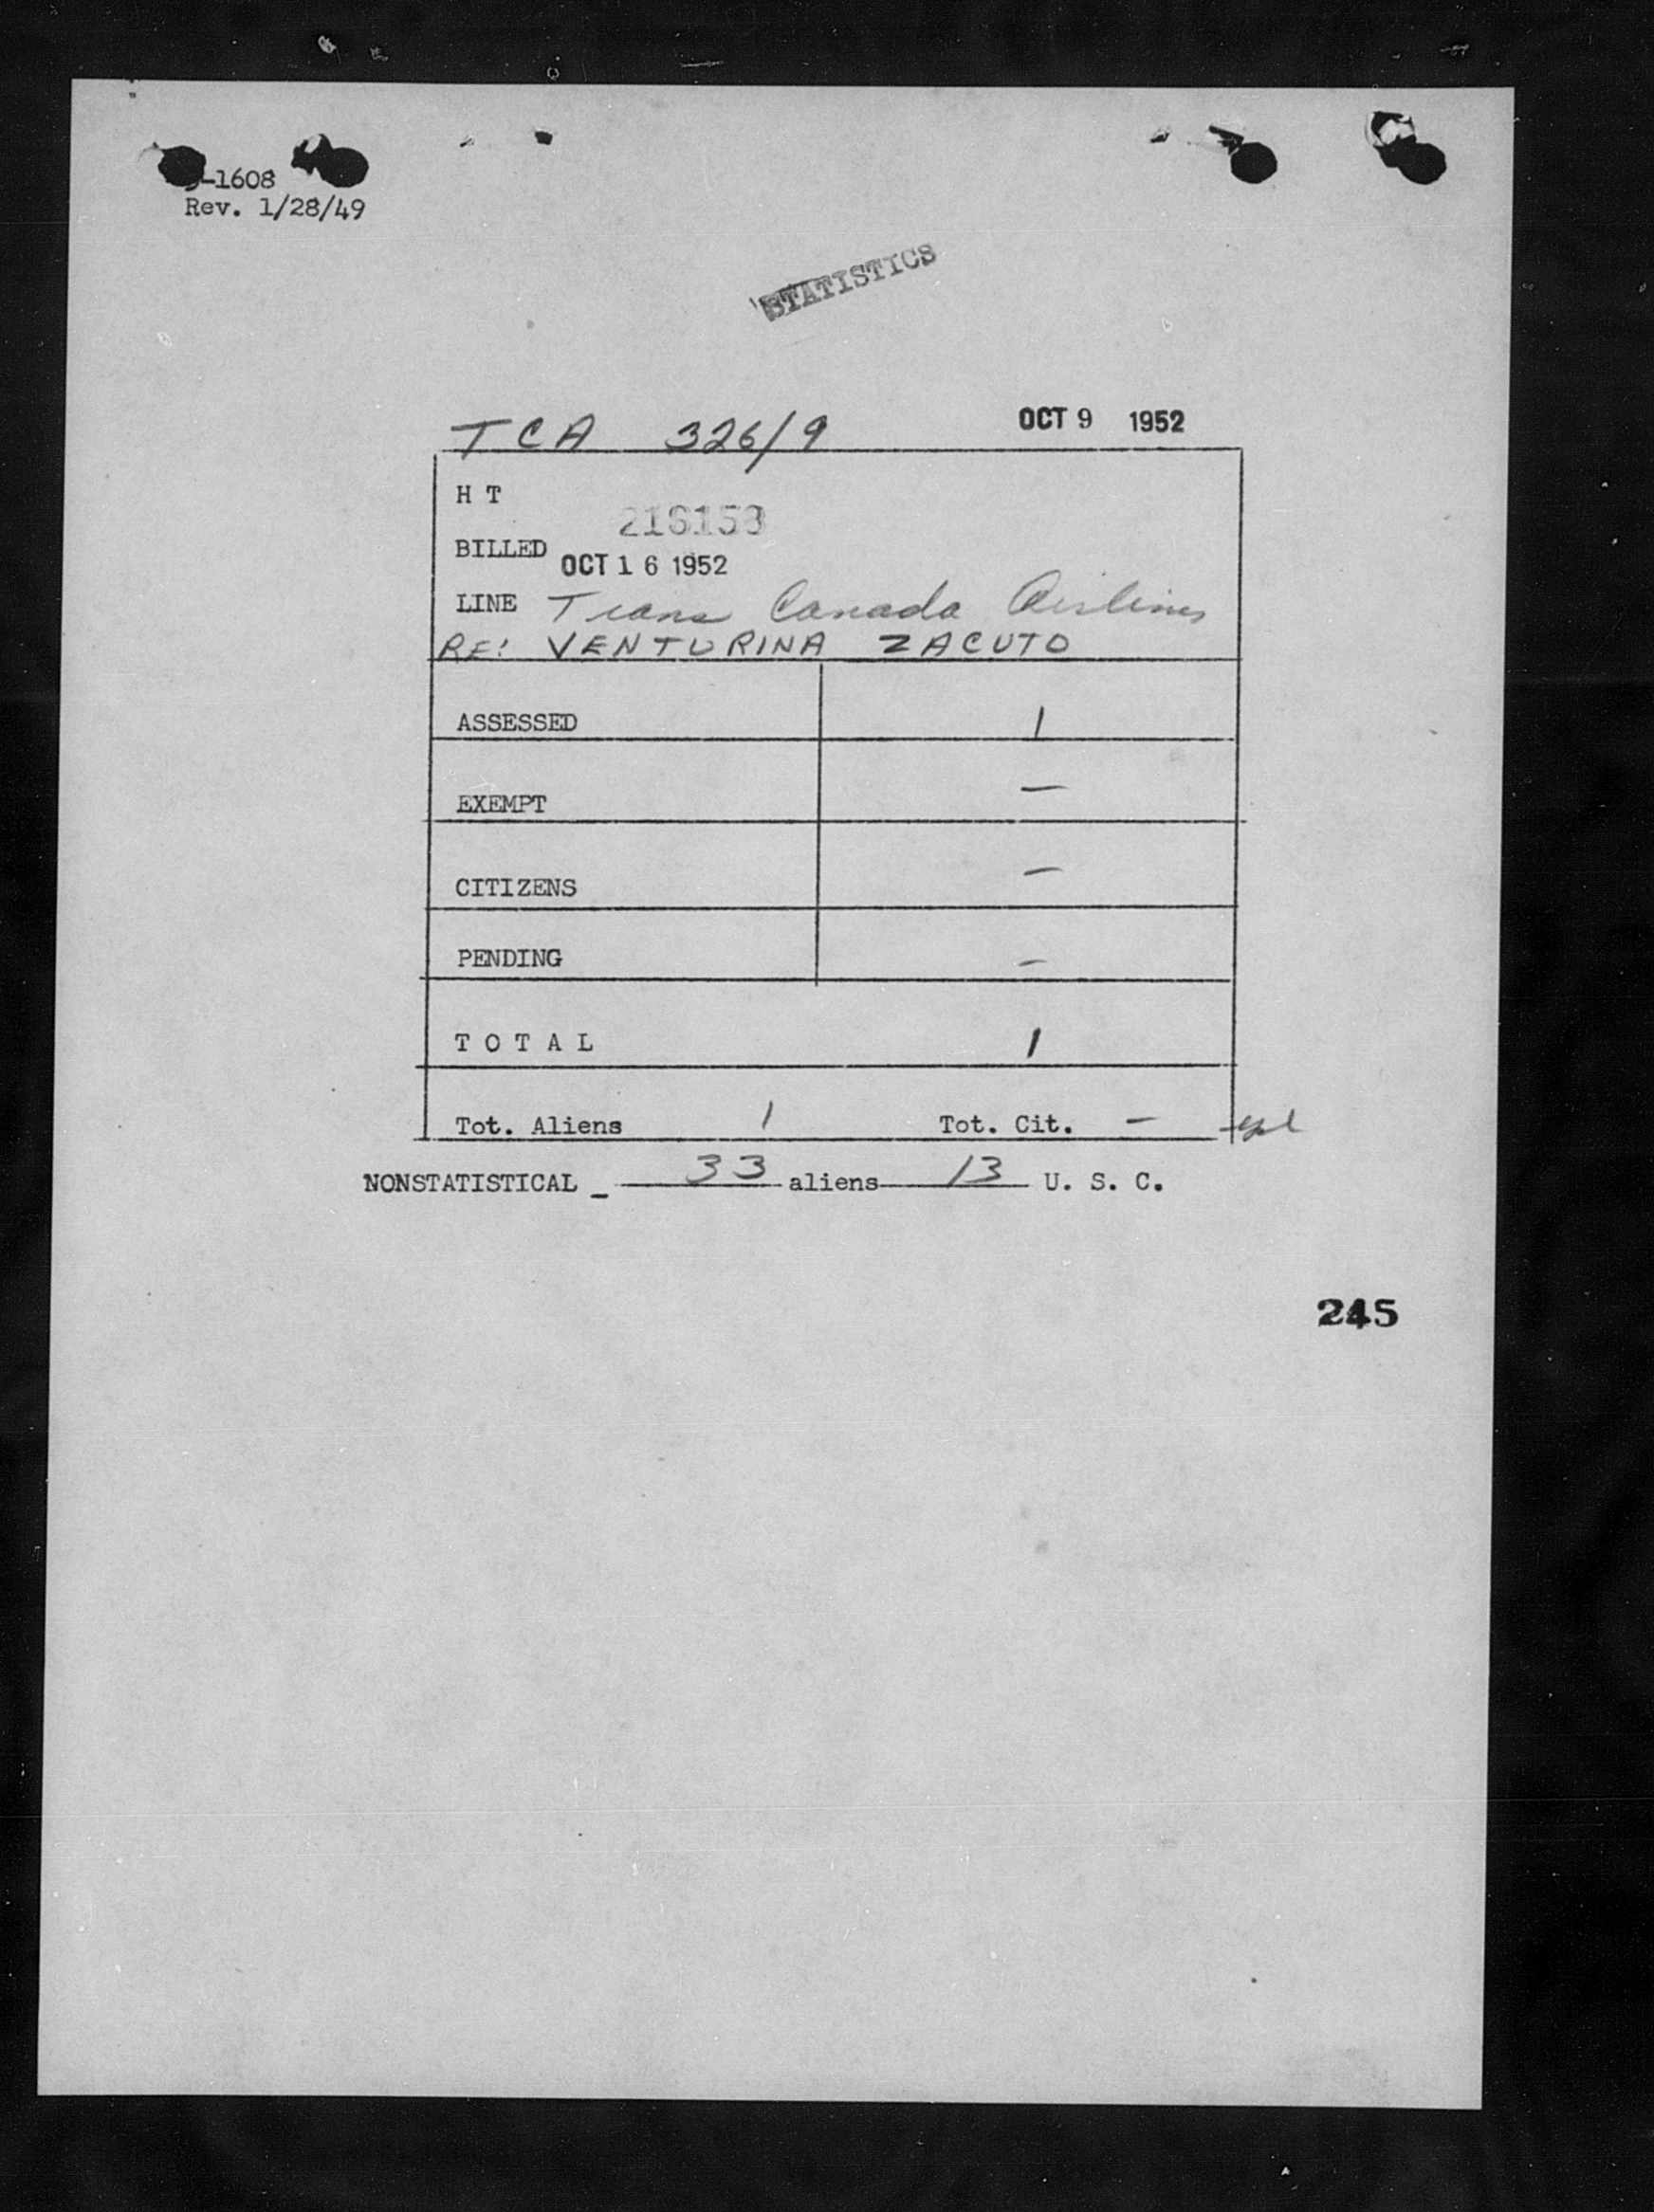 -1608
Rev. 1/28/49
STATISTICS
TCA 326/9 OCT 9 1952
H T
BILLED OCT 16 1952
LINE Trans Canada Airlines
RE: VENTURINA ZACUTO
ASSESSED 1
EXEMPT —
CITIZENS —
PENDING —
T O T A L 1
Tot. Aliens 1 Tot. Cit. —
NONSTATISTICAL _ 33 aliens 13 U. S. C.
245